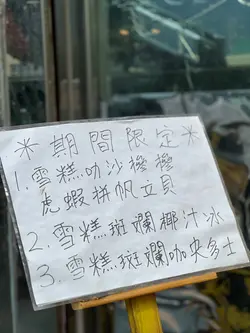 ＊期間限定＊
1. 雪糕叻沙檬檬
虎蝦拼帆立貝
2. 雪糕斑斕椰汁冰
3. 雪糕斑斕咖央多士